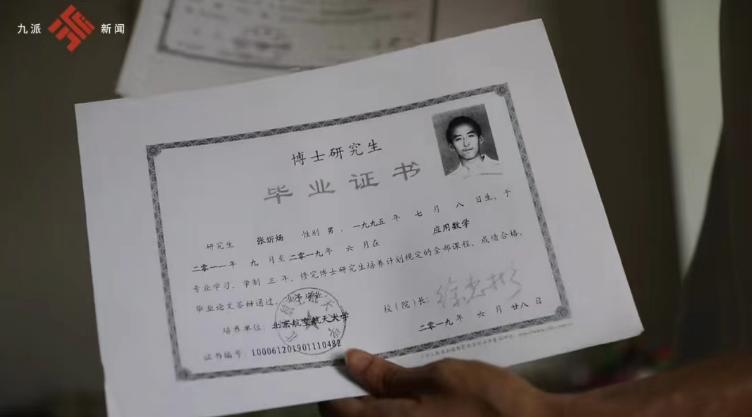 九派 新闻
博士研究生
毕业证书
研究生 张炘炀 性别 男,一九九五 年 七 月 八 日生,于
二〇一一年 九 月至二〇一九年 六 月在 应用数学
专业学习,学制 三 年,修完博士研究生培养计划规定的全部课程,成绩合格,
毕业论文答辩通过,准予毕业。
培养单位:北京航空航天大学 校(院)长:
证书编号:100061201901110482 二〇一九年 六 月 廿八 日